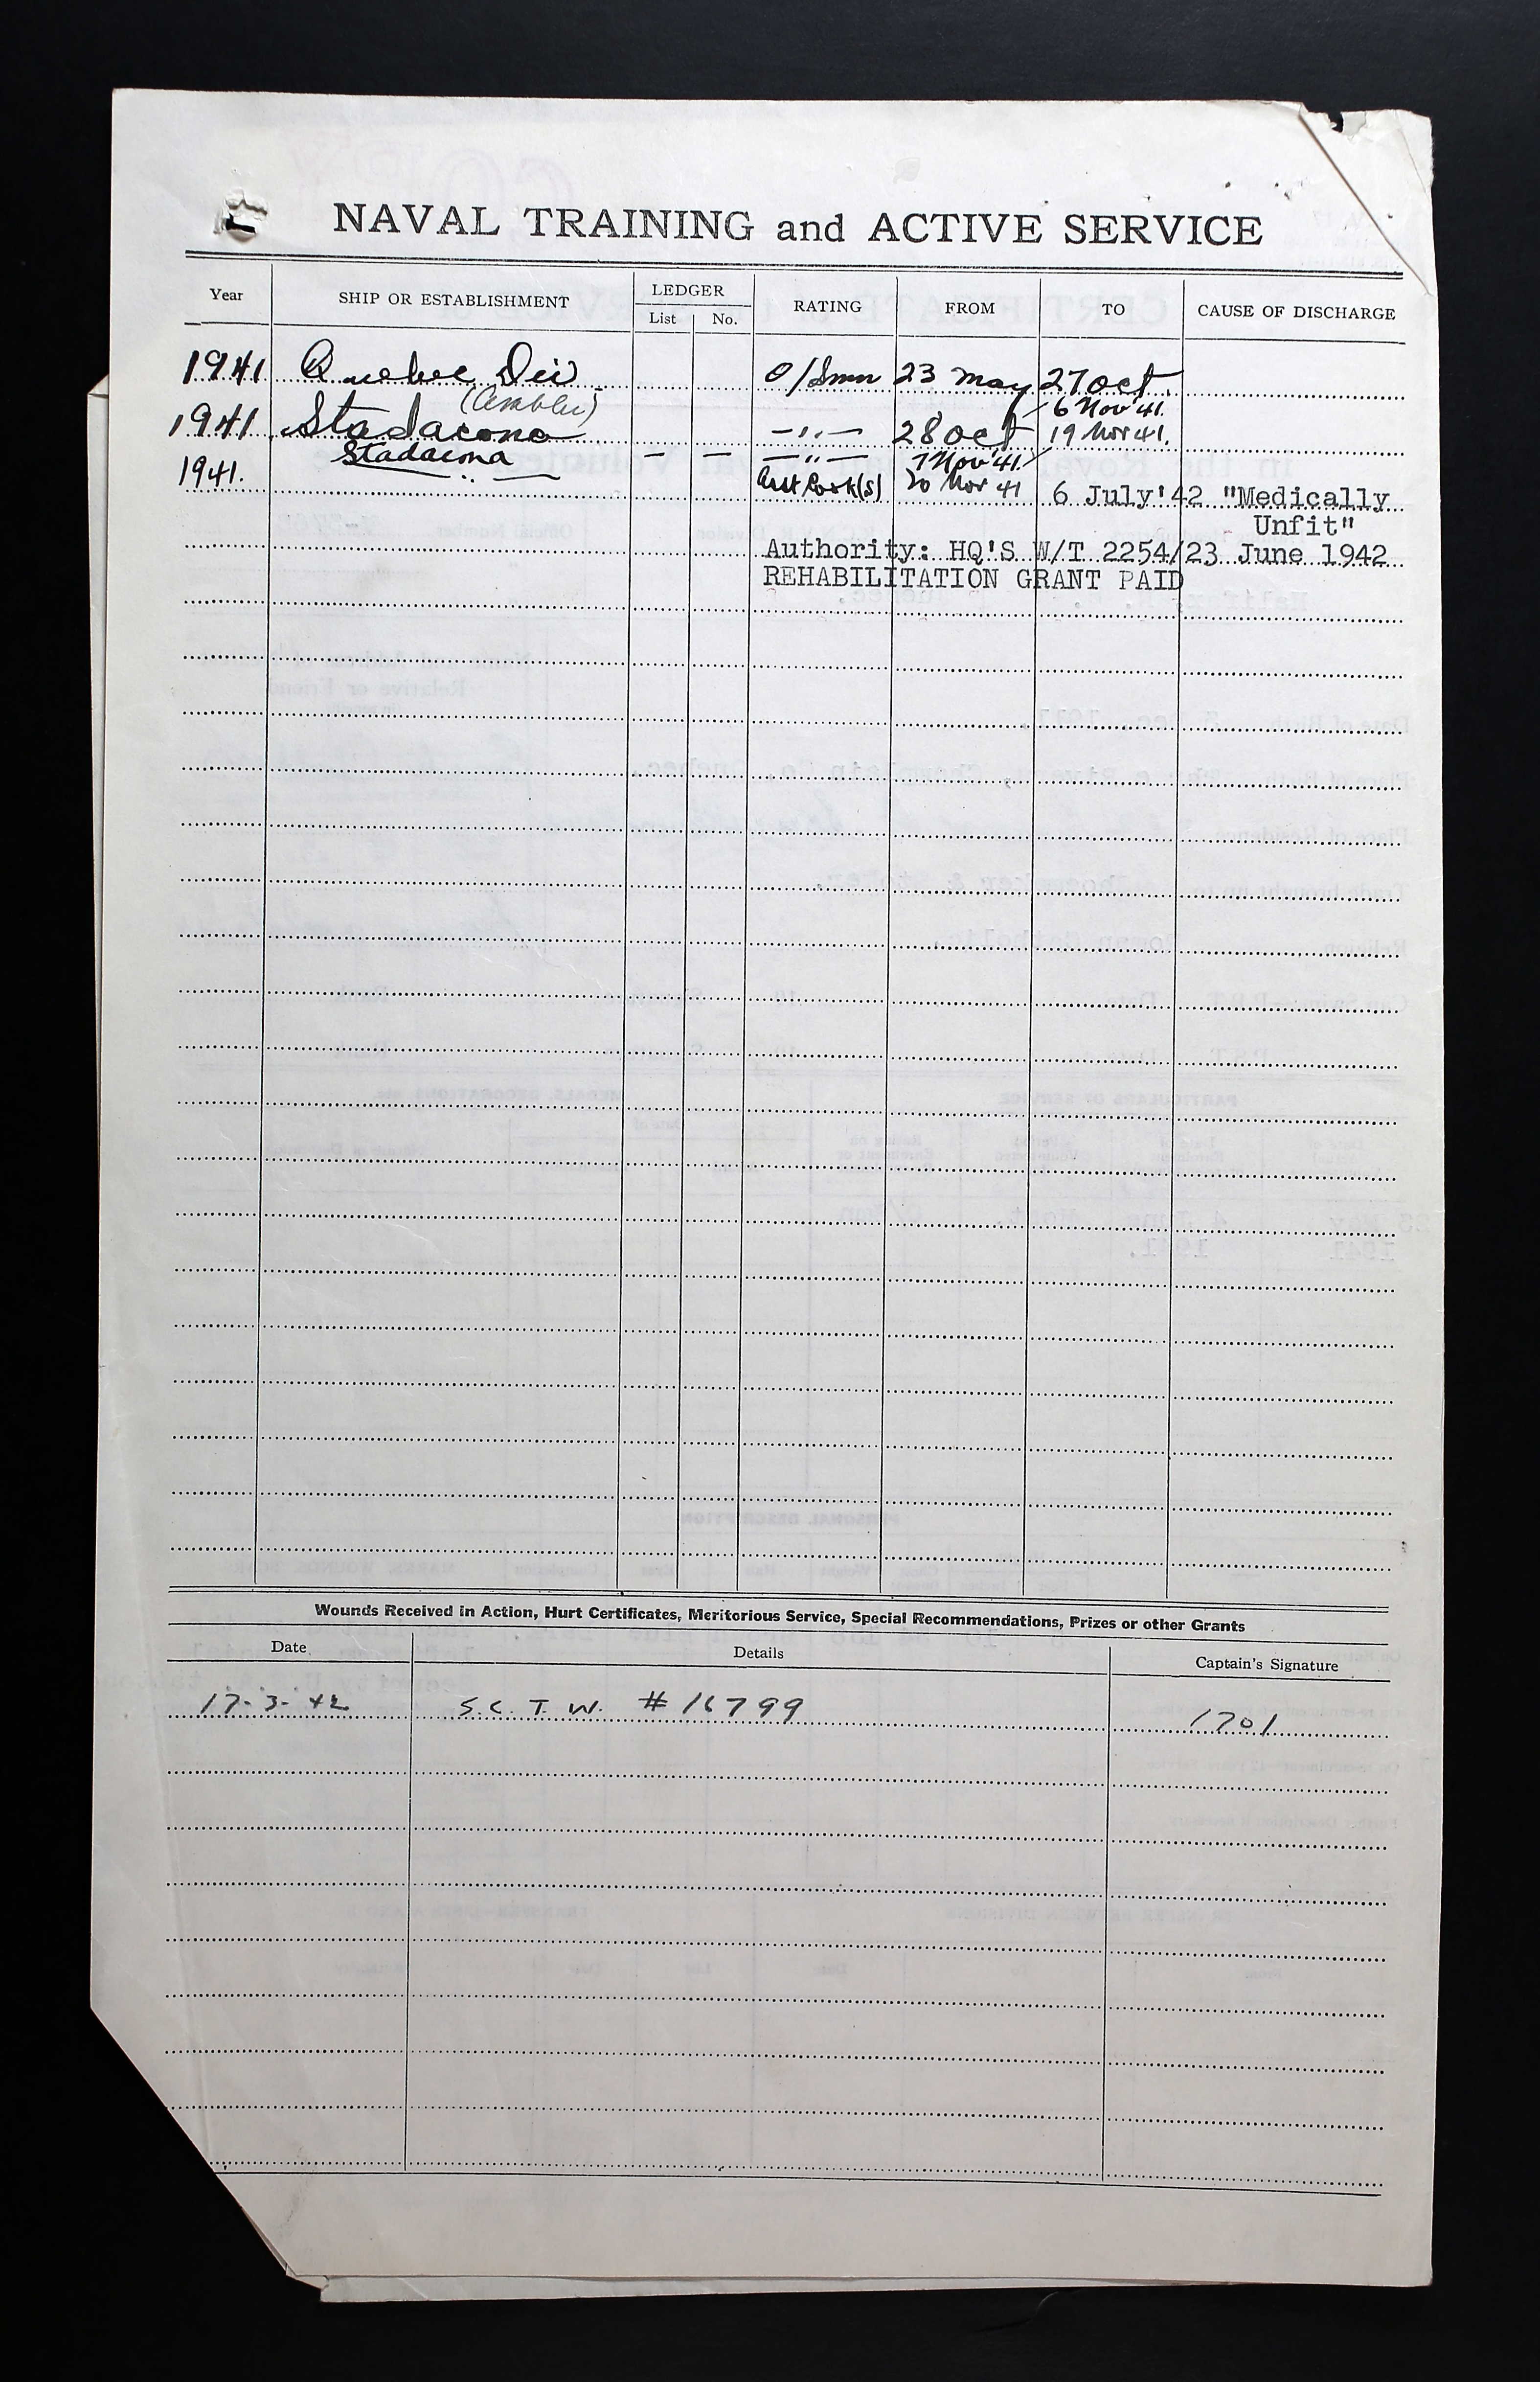 NAVAL TRAINING and ACTIVE SERVICE
Year SHIP OR ESTABLISHMENT LEDGER List No. RATING FROM TO CAUSE OF DISCHARGE
1941 Quebec Div. O/Smn 23 May 27 Oct.
(Ambler) 6 Nov '41.
1941 Stadacona —〃— 28 Oct 19 Nov 41.
Stadacona — — —〃— 7 Nov '41.
1941. —〃— Asst Cook(S) 20 Nov 41 6 July '42 "Medically
Unfit"
Authority: HQ'S W/T 2254/23 June 1942
REHABILITATION GRANT PAID
Wounds Received in Action, Hurt Certificates, Meritorious Service, Special Recommendations, Prizes or other Grants
Date Details Captain's Signature
17-3-42 S.C. T.W. # 16799 1701